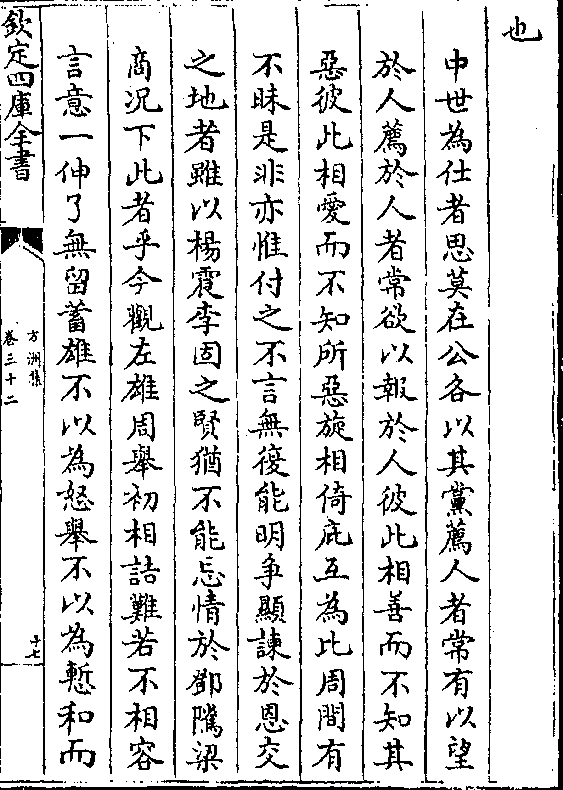 也
中世為仕者思莫在公各以其黨薦人者常有以望
於人薦於人者常欲以報於人彼此相善而不知其
惡彼此相愛而不知所惡旋相倚庇互為比周間有
不昧是非亦惟付之不言無復能明爭顯諫於恩交
之地者雖以楊震李固之賢猶不能忘情於鄧隲梁
商況下此者乎今觀左雄周舉初相詰難若不相容
言意一伸了無留蓄雄不以為怒舉不以為慙和而
欽定四庫全書
方洲集
卷三十二
十七